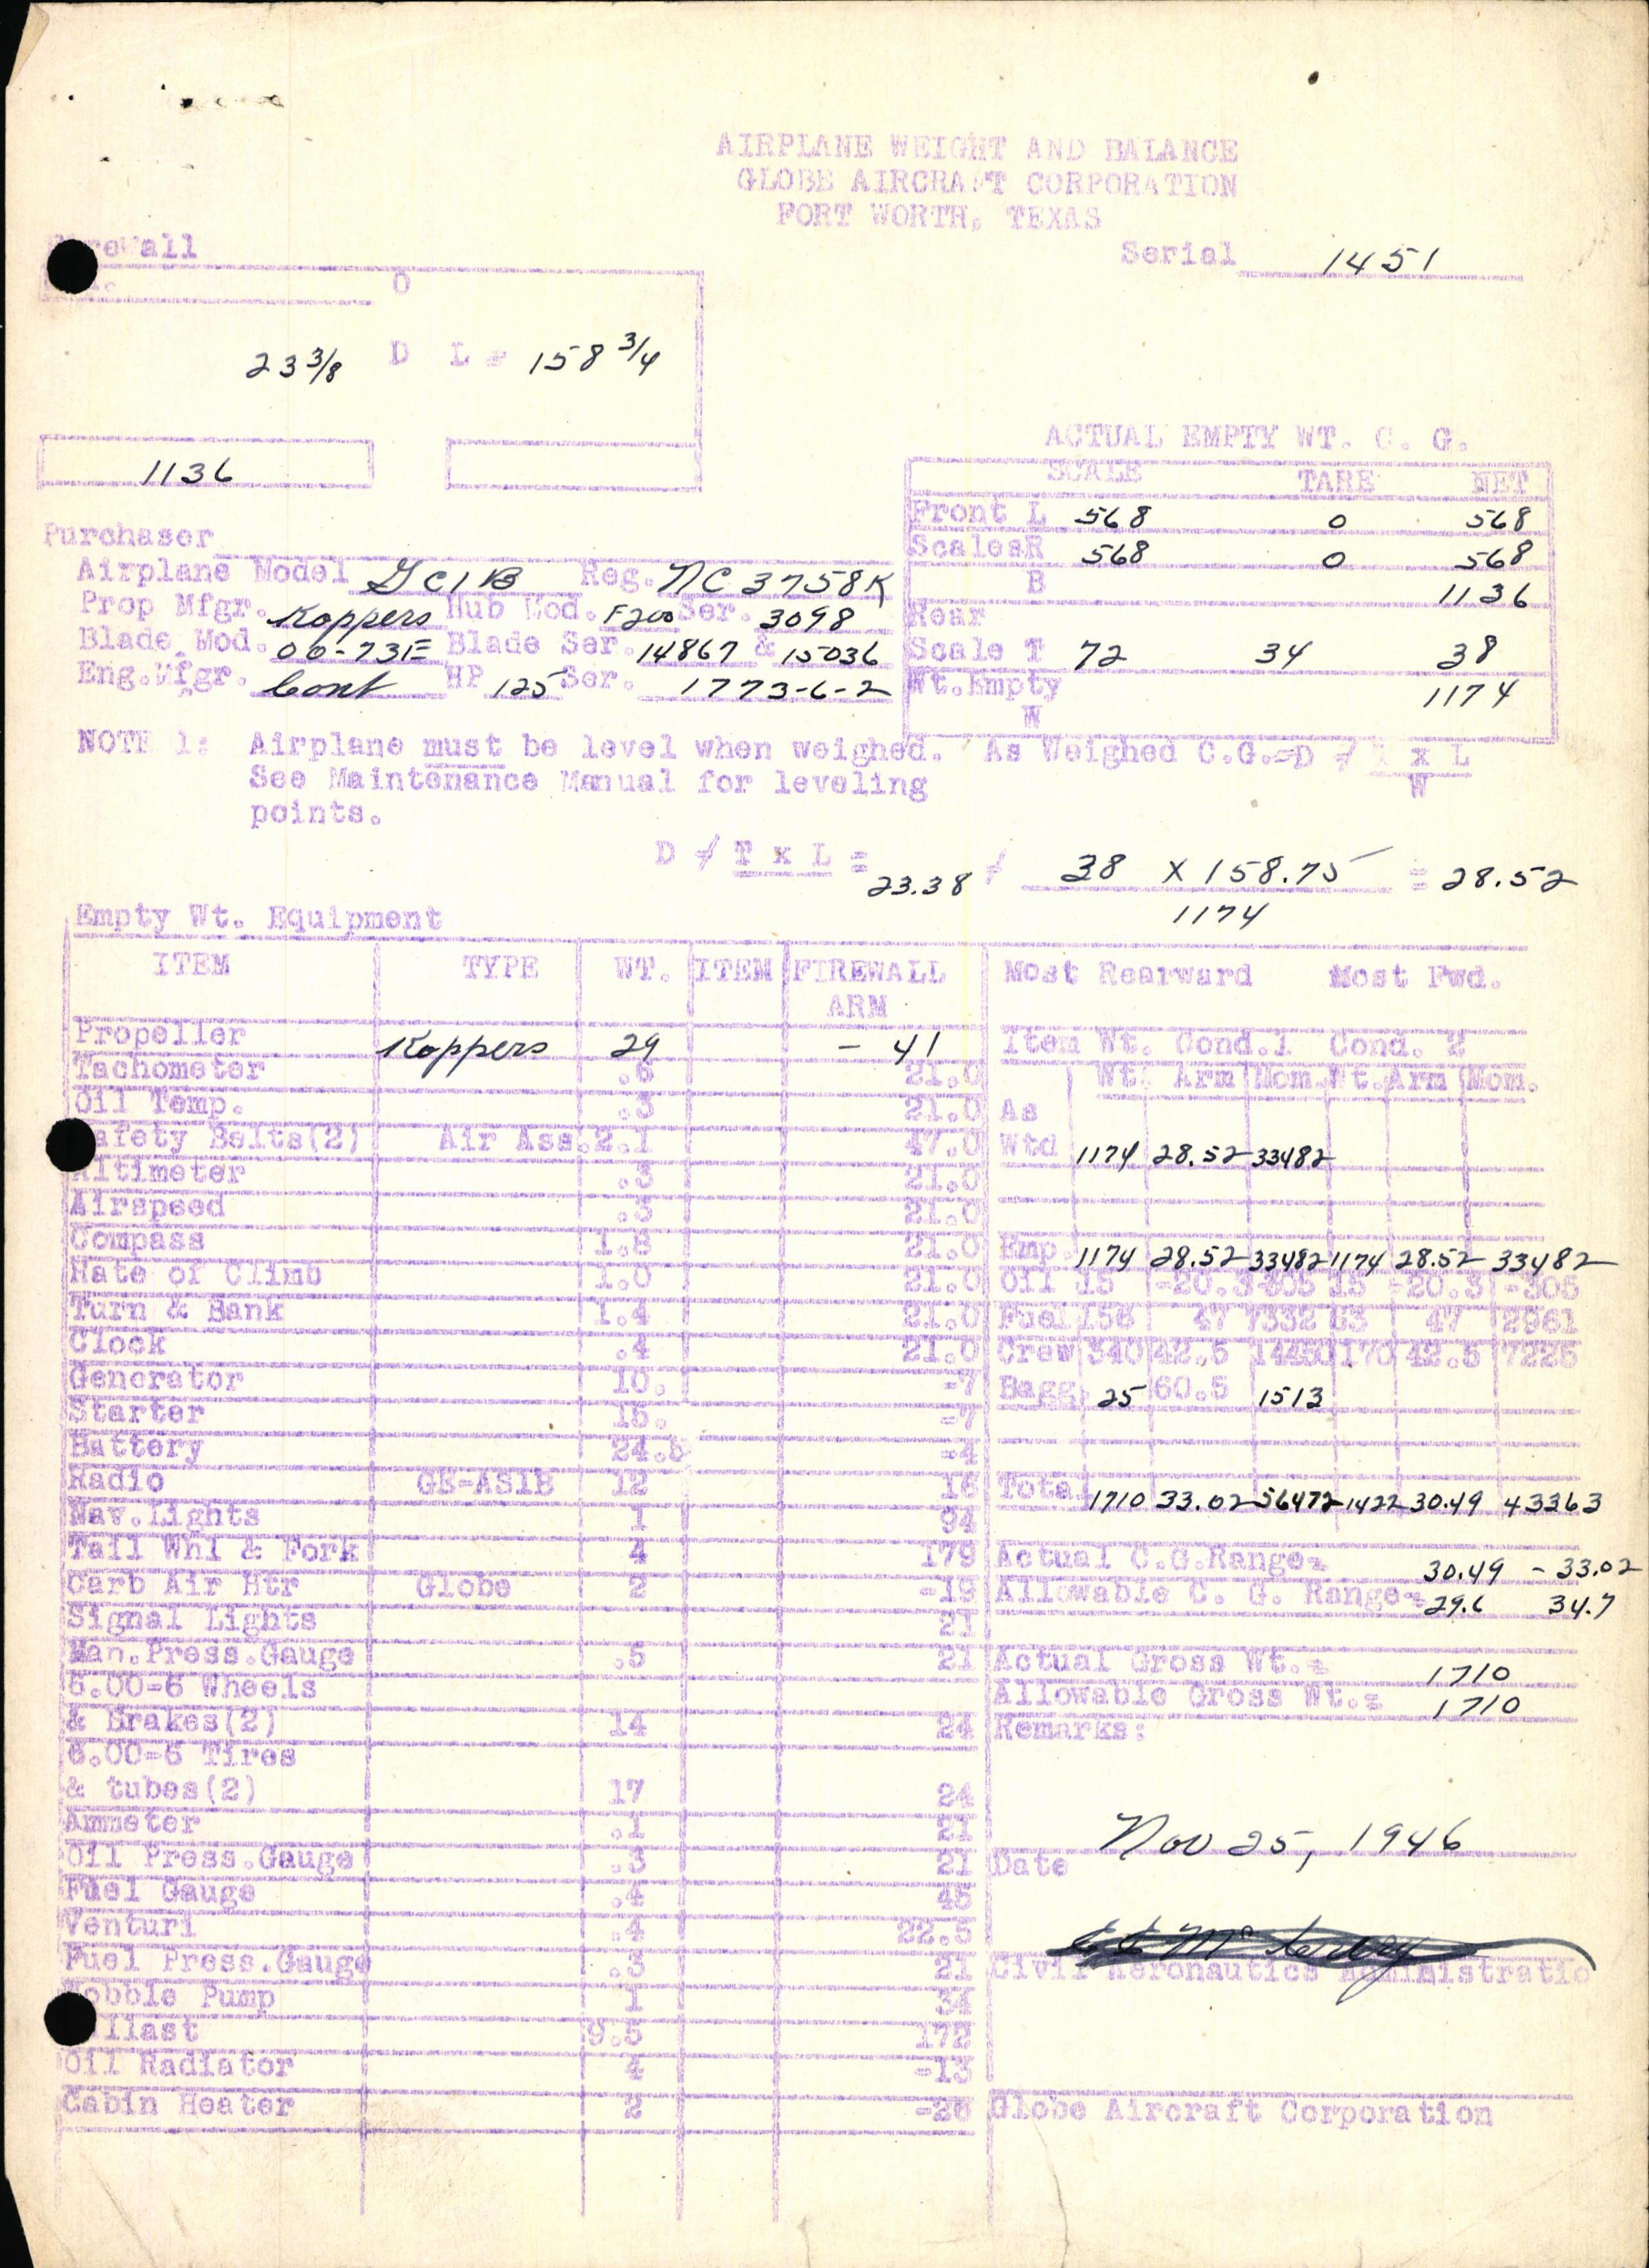 AIRPLANE WEIGHT AND BALANCE
GLOBE AIRCRAFT CORPORATION
FORT WORTH, TEXAS
Serial 1451
Firewall
0
23 3/8 D L = 158 3/4
1136
ACTUAL EMPTY WT. C. G.
SCALE TARE NET
Front L 568 0 568
Scales R 568 0 568
B 1136
Rear
Scale T 72 34 38
Wt. Empty 1174
W
Purchaser
Airplane Model GC1B Reg. NC3758K
Prop Mfgr. Koppers Hub Mod. F200 Ser. 3098
Blade Mod. 00-73E Blade Ser. 14867 & 15036
Eng. Mfgr. Cont HP 125 Ser. 1773-6-2
NOTE 1: Airplane must be level when weighed. As Weighed C.G.=D ≠ T x L
See Maintenance Manual for leveling W
points.
D ≠ T x L = 23.38 ≠ 38 X 158.75 = 28.52
1174
Empty Wt. Equipment
ITEM TYPE WT. ITEM FIREWALL Most Rearward Most Fwd.
ARM
Propeller Koppers 29 - 41 Item Wt. Cond.1 Cond. 2
Tachometer .6 21.0 Wt. Arm Mom. Wt. Arm Mom.
Oil Temp. .3 21.0 As
Safety Belts(2) Air Ass. 2.1 47.0 Wtd 1174 28.52 33482
Altimeter .3 21.0
Airspeed .3 21.0
Compass 1.8 21.0 Emp. 1174 28.52 33482 1174 28.52 33482
Rate of Climb 1.0 21.0 Oil 15 -20.3 -305 15 -20.3 -305
Turn & Bank 1.4 21.0 Fuel 156 47 7332 63 47 2961
Clock .4 21.0 Crew 340 42.5 14450 170 42.5 7225
Generator 10. -7 Bagg. 25 60.5 1513
Starter 15. -7
Battery 24.5 -4
Radio GE-AS1B 12 16 Total 1710 33.02 56472 1422 30.49 43363
Nav.Lights 1 94
Tail Whl & Fork 4 179 Actual C.G.Range= 30.49 - 33.02
Carb Air Htr Globe 2 -19 Allowable C. G. Range= 29.6 34.7
Signal Lights 21
Man.Press.Gauge .5 21 Actual Gross Wt.= 1710
6.00-6 Wheels Allowable Gross Wt.= 1710
& Brakes(2) 14 24 Remarks:
6.00-6 Tires
& tubes(2) 17 24
Ammeter .1 21
Oil Press.Gauge .3 21 Date Nov 25, 1946
Fuel Gauge .4 45
Venturi .4 22.5
Fuel Press.Gauge .3 21 Civil Aeronautics Administratio
Wobble Pump 1 34
Ballast 9.5 172
Oil Radiator 4 -13
Cabin Heater 2 -26 Globe Aircraft Corporation